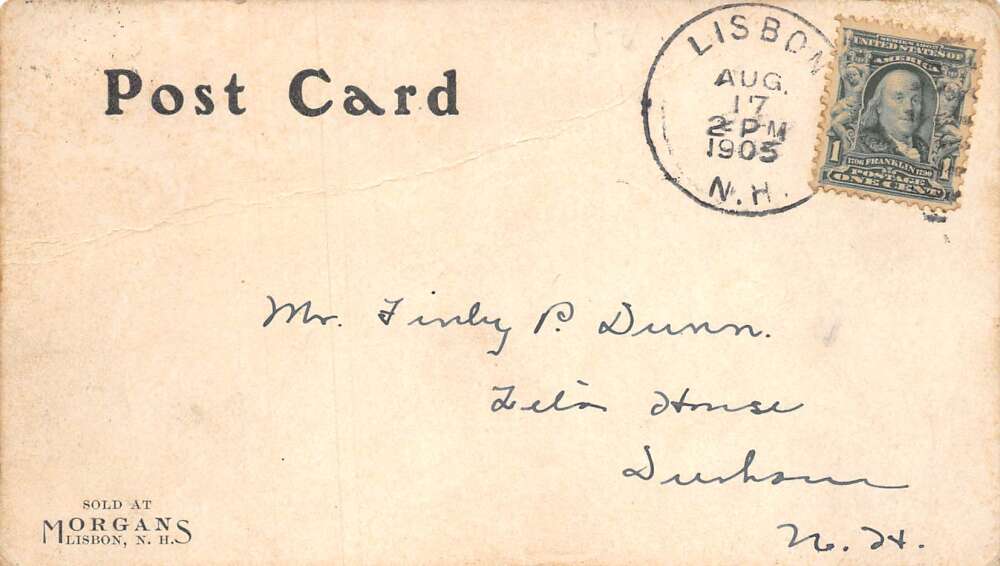 Post Card
LISBON
AUG.
17
2 PM
1905
N.H.
SERIES 1902
UNITED STATES OF
AMERICA
1706 FRANKLIN 1790
1 1
POSTAGE
ONE CENT
Mr. Finley P. Dunn.
Zeta House
Durham
N. H.
SOLD AT
MORGANS
LISBON, N. H.